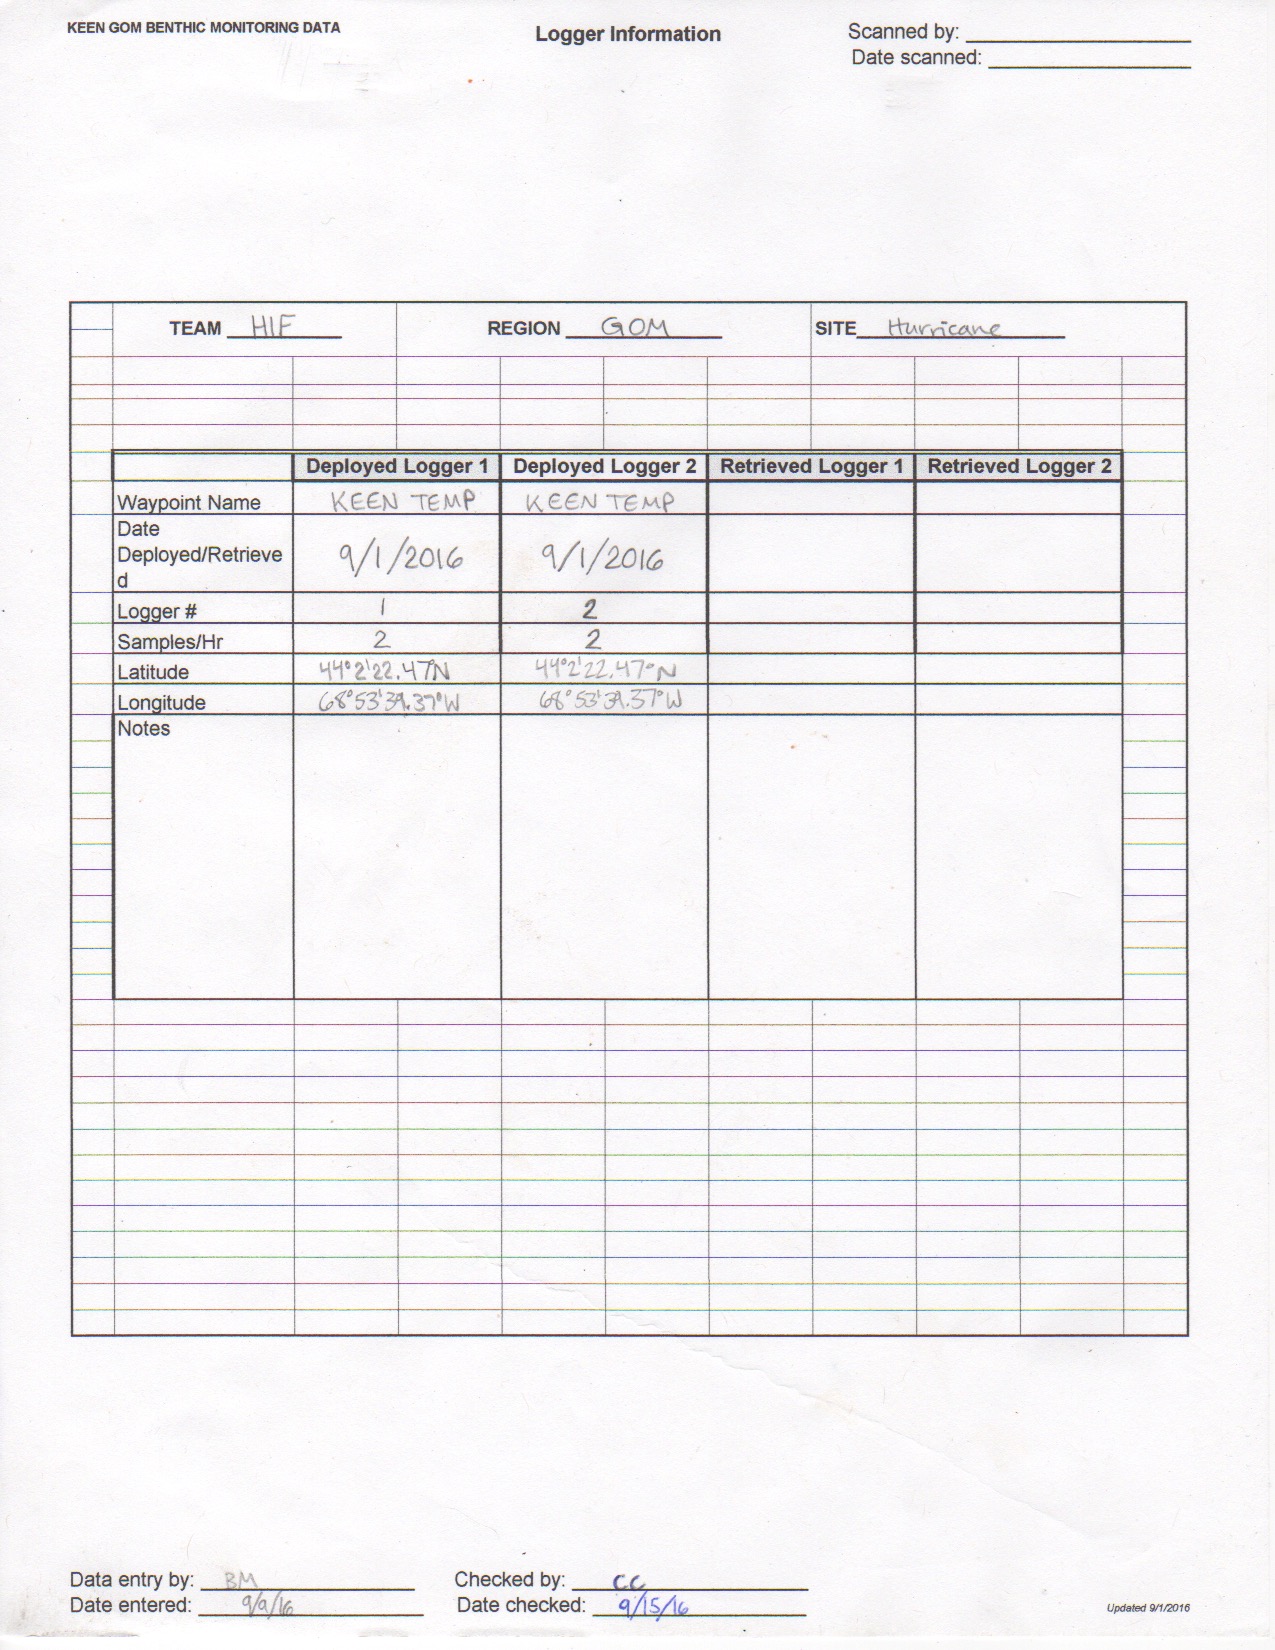 KEEN GOM BENTHIC MONITORING DATA
Logger Information
Scanned by:
Date scanned:
TEAM HIF REGION GOM SITE Hurricane
Deployed Logger 1 Deployed Logger 2 Retrieved Logger 1 Retrieved Logger 2
Waypoint Name KEEN TEMP KEEN TEMP
Date
Deployed/Retrieve 9/1/2016 9/1/2016
d
Logger # 1 2
Samples/Hr 2 2
Latitude 44°2'22.47"N 44°2'22.47"N
Longitude 68°53'39.37"W 68°53'39.37"W
Notes
Data entry by: BM Checked by: CC
Date entered: 9/9/16 Date checked: 9/15/16
Updated 9/1/2016